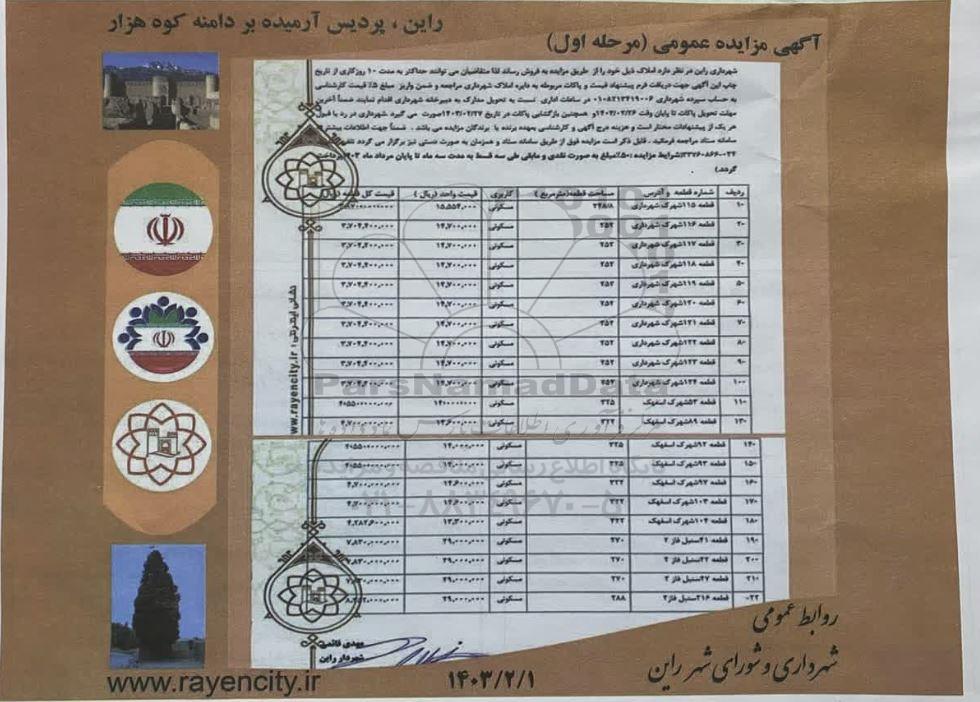 راین ، پردیس آرمیده بر دامنه کوه هزار
آگهی مزایده عمومی (مرحله اول)
شهرداری راین در نظر دارد املاک ذیل خود را از طریق مزایده به فروش رساند لذا متقاضیان می توانند حداکثر به مدت ۱۰ روزکاری از تاریخ
چاپ این آگهی جهت دریافت فرم پیشنهاد قیمت و پاکات مربوطه به دایره املاک شهرداری مراجعه و ضمن واریز مبلغ ۵٪ قیمت کارشناسی
به حساب سپرده شهرداری ۰۱۰۸۲۱۳۴۱۹۰۰۶ در ساعات اداری نسبت به تحویل مدارک به دبیرخانه شهرداری اقدام نمایند ضمناً آخرین
مهلت تحویل پاکات تا پایان وقت ۱۴۰۳/۰۲/۲۶ و همچنین بازگشایی پاکات در تاریخ ۱۴۰۳/۰۲/۲۷صورت می گیرد. شهرداری در رد یا قبول
هر یک از پیشنهادات مختار است و هزینه درج آگهی و کارشناسی بعهده برنده یا برندگان مزایده می باشد . ضمناً جهت اطلاعات بیشتر به
سامانه ستاد مراجعه فرمائید . قابل ذکر است مزایده فوق از طریق سامانه ستاد و همزمان به صورت دستی نیز برگزار می گردد
۰۳۴-۳۳۷۶۰۸۶۶شرایط مزایده :۵۰٪مبلغ به صورت نقدی و مابقی طی سه قسط به مدت سه ماه تا پایان مرداد ماه ۱۴۰۳پرداخت
گردد.)
ردیف شماره قطعه و آدرس مساحت قطعه(مترمربع ) کاربری قیمت واحد (ریال ) قیمت کل قطعه (ریال)
۱۰- قطعه ۱۱۵شهرک شهرداری ۲۴۸/۸ مسکونی ۱۵,۵۵۴,۰۰۰
۲- قطعه ۱۱۶شهرک شهرداری ۲۵۲ مسکونی ۱۴,۷۰۰,۰۰۰ ۳,۷۰۴,۴۰۰,۰۰۰
۳- قطعه ۱۱۷شهرک شهرداری ۲۵۲ مسکونی ۱۴,۷۰۰,۰۰۰ ۳,۷۰۴,۴۰۰,۰۰۰
۴- قطعه ۱۱۸شهرک شهرداری ۲۵۲ مسکونی ۱۴,۷۰۰,۰۰۰ ۳,۷۰۴,۴۰۰,۰۰۰
۵- قطعه ۱۱۹شهرک شهرداری ۲۵۲ مسکونی ۱۴,۷۰۰,۰۰۰ ۳,۷۰۴,۴۰۰,۰۰۰
۶- قطعه ۱۲۰شهرک شهرداری ۲۵۲ مسکونی ۱۴,۷۰۰,۰۰۰ ۳,۷۰۴,۴۰۰,۰۰۰
۷- قطعه ۱۲۱شهرک شهرداری ۲۵۲ مسکونی ۱۴,۷۰۰,۰۰۰ ۳,۷۰۴,۴۰۰,۰۰۰
۸- قطعه ۱۲۲شهرک شهرداری ۲۵۲ مسکونی ۱۴,۷۰۰,۰۰۰ ۳,۷۰۴,۴۰۰,۰۰۰
۹- قطعه ۱۲۳شهرک شهرداری ۲۵۲ مسکونی ۱۴,۷۰۰,۰۰۰ ۳,۷۰۴,۴۰۰,۰۰۰
۱۰- قطعه ۱۲۴شهرک شهرداری ۲۵۲ مسکونی ۱۴,۷۰۰,۰۰۰ ۳,۷۰۴,۴۰۰,۰۰۰
۱۱- قطعه ۵۳شهرک اسفهک ۳۲۵ مسکونی
۱۳- قطعه ۸۹شهرک اسفهک ۳۲۲ مسکونی
۱۴- قطعه ۹۲شهرک اسفهک ۳۲۵ مسکونی ۱۴,۰۰۰,۰۰۰
۱۵- قطعه ۹۳شهرک اسفهک ۳۲۵ مسکونی
۱۶- قطعه ۹۷شهرک اسفهک ۳۲۲ مسکونی ۱۴,۶۰۰,۰۰۰ ۴,۷۰۰,۰۰۰,۰۰۰
۱۷- قطعه ۱۰۳شهرک اسفهک ۳۲۲ مسکونی ۱۴,۶۰۰,۰۰۰ ۴,۷۰۰,۰۰۰,۰۰۰
۱۸- قطعه ۱۰۴شهرک اسفهک ۳۲۲ مسکونی ۱۳,۳۰۰,۰۰۰ ۴,۲۸۲,۶۰۰,۰۰۰
۱۹- قطعه ۴۱سنبل فاز ۲ ۲۷۰ مسکونی ۲۹,۰۰۰,۰۰۰ ۷,۸۳۰,۰۰۰,۰۰۰
۲۰- قطعه ۴۲سنبل فاز ۲ ۲۷۰ مسکونی ۲۹,۰۰۰,۰۰۰ ۷,۸۳۰,۰۰۰,۰۰۰
۲۱- قطعه ۴۷سنبل فاز ۲ ۲۷۰ مسکونی ۲۹,۰۰۰,۰۰۰
۲۲- قطعه ۲۱۶سنبل فاز۲ ۲۸۸ مسکونی ۲۹,۰۰۰,۰۰۰
نشانی اینترنتی: www.rayencity.ir
ParsNamadData
۰۲۱-۸۸۳۴۹۶۷۰-۵
مهدی قائمی
شهردار راین
روابط عمومی
شهرداری و شورای شهر راین
www.rayencity.ir
۱۴۰۳/۲/۱